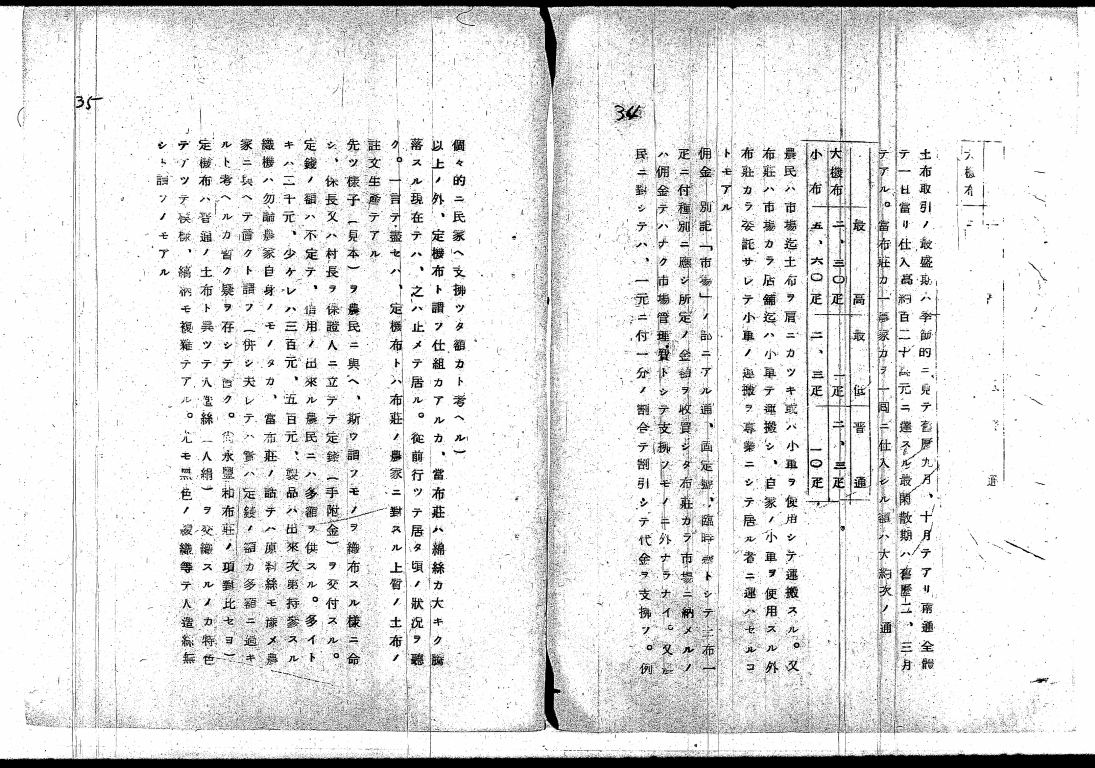 34
土布取引ノ最盛期ハ季節的ニ見テ舊曆九月、十月テアリ南通全體
テ一日當リ仕入高約百二十萬元ニ達スル最閑散期ハ舊曆二、三月
テアル。當布莊カ一農家カラ一回ニ仕入シル額ハ大約次ノ通
最高 最低 普通
大機布 二、三〇疋 一疋 二、三疋
小布 五、六〇疋 二、三疋 一〇疋
農民ハ市場迄土布ヲ肩ニカツキ或ハ小車ヲ使用シテ運搬スル。又
布莊ハ市場カラ店舗迄ハ小車テ運搬シ、自家ノ小車ヲ使用スル外
布莊カラ委託サレテ小車ノ運搬ヲ專業ニシテ居ル者ニ運ハセルコ
トモアル
佣金 別記「市場」ノ部ニアル通、固定盤、臨時盤トシテ土布一
疋ニ付種別ニ應シ所定ノ金額ヲ收買シタ布莊カラ市場ニ納メルノ
ハ佣金テハナク市場管理費トシテ支拂フモノニ外ナラナイ。又
民ニ對シテハ、一元ニ付一分ノ割合テ割引シテ代金ヲ支拂フ。例
35
個々的ニ民家ヘ支拂ツタ額カト考ヘル)
以上ノ外、定機布ト謂フ仕組カアルカ、當布莊ハ綿絲カ大キク騰
落スル現在テハ、之ハ止メテ居ル。從前行ツテ居タ頃ノ狀況ヲ聽
ク。一言テ盡セハ、定機布トハ布莊ノ農家ニ對スル上質ノ土布ノ
註文生產テアル
先ツ樣子(見本)ヲ農民ニ與ヘ、斯ウ謂フモノヲ織布スル樣ニ命
シ、保長又ハ村長ヲ保證人ニ立テテ定錢(手附金)ヲ交付スル。
定錢ノ額ハ不定テ、信用ノ出來ル農民ニハ多額ヲ供スル。多イト
キハ二千元、少ケレハ三百元、五百元、製品ハ出來次第持參スル
織機ハ勿論農家自身ノモノタカ、當布莊ノ話テハ原料絲モ豫メ農
家ニ與ヘテ置クト謂フ(併シ夫レテハ實ハ定錢ノ額カ多額ニ過キ
ルト考ヘルカ暫ク疑ヲ存シテ置ク。尙永豐和布莊ノ項對比セヨ)
定機布ハ普通ノ土布ト異ツテ人造絲(人絹)ヲ交織スルノカ特色
テアツテ模樣、縞柄モ複雜テアル。尤モ黑色ノ綾織等テ人造絲無
シト謂フノモアル